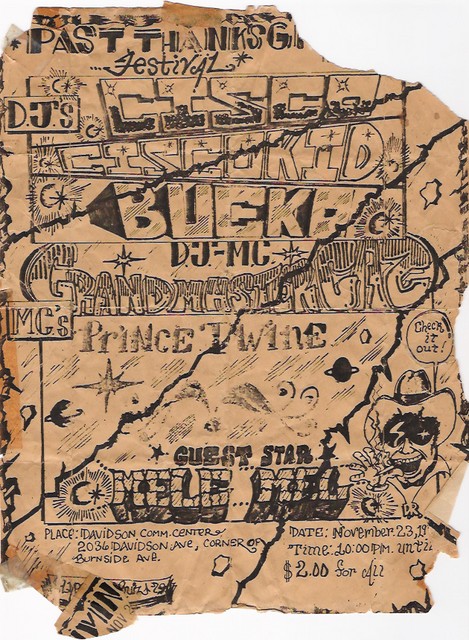 PAST THANKSGI
Festival
DJ'S
CISCO
CISCO KID
DJ-MC
GRANDMASTER
MC's
PRINCE TWINE
Check
it
out!
GUEST STAR
MELE MEL
PLACE: DAVIDSON COMM. CENTER
2036 DAVIDSON AVE, CORNER OF
BURNSIDE AVE.
DATE: November 23, 19
Time: 10:00 PM. until
$2.00 for all